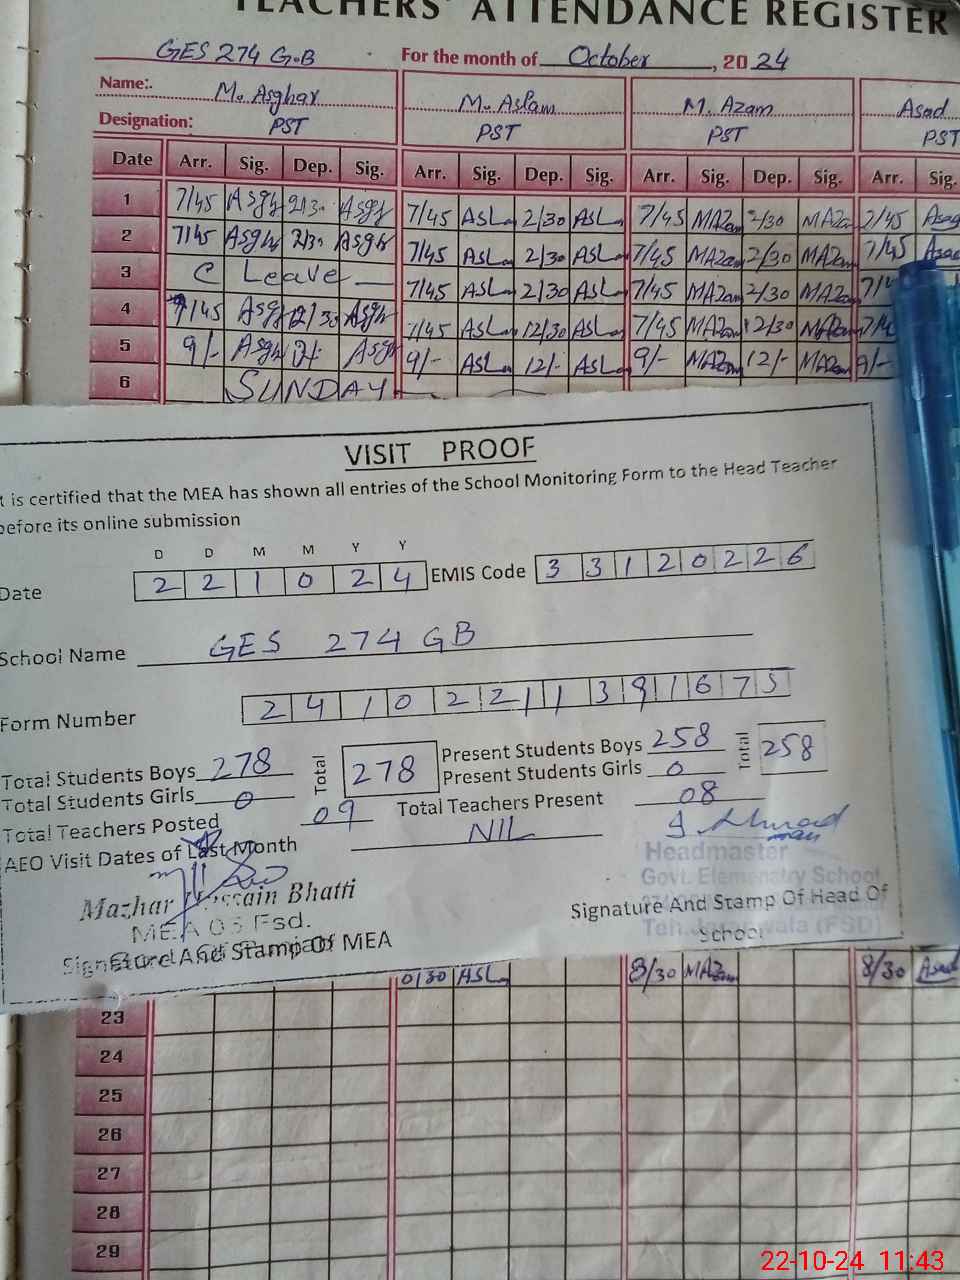 TEACHERS' ATTENDANCE REGISTER
GES 274 G.B For the month of October, 2024
Name: M. Asghar M. Aslam M. Azam Asad
Designation: PST PST PST PST
Date Arr. Sig. Dep. Sig. Arr. Sig. Dep. Sig. Arr. Sig. Dep. Sig. Arr. Sig.
1 7/45 Asgh 2/30 Asgh 7/45 ASL 2/30 ASL 7/45 MAZam 2/30 MAZam 7/45 Asad
2 7/45 Asgh 2/30 Asgh 7/45 ASL 2/30 ASL 7/45 MAZam 2/30 MAZam 7/45 Asad
3 C Leave 7/45 ASL 2/30 ASL 7/45 MAZam 2/30 MAZam 7/
4 7/45 Asgh 12/30 Asgh 7/45 ASL 12/30 ASL 7/45 MAZam 12/30 MAZam 7/
5 9/- Asgh Asgh 9/- ASL 12/- ASL 9/- MAZam 12/- MAZam 9/-
6 SUNDAY
VISIT PROOF
t is certified that the MEA has shown all entries of the School Monitoring Form to the Head Teacher
before its online submission
D D M M Y Y
Date 2 2 1 0 2 4 EMIS Code 3 3 1 2 0 2 2 6
School Name GES 274 GB
Form Number 2 4 1 0 2 2 1 1 3 9 1 6 7 5
Total Students Boys 278 Total 278 Present Students Boys 258 Total 258
Total Students Girls 0 Present Students Girls 0
Total Teachers Posted 09 Total Teachers Present 08
AEO Visit Dates of Last Month NIL
Headmaster
Govt. Elementry School
Teh. Jaranwala (FSD)
Mazhar Hussain Bhatti
MEA 03 Fsd.
Signature And Stamp Of MEA
Signature And Stamp Of Head Of
School
0/30 ASL 8/30 MAZam 8/30 Asad
23
24
25
26
27
28
29
22-10-24 11:43